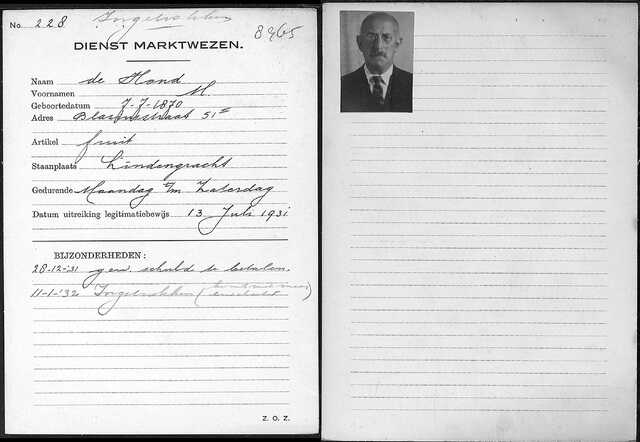 No. 228 Ingetrokken
8965
DIENST MARKTWEZEN.
Naam de Hond
Voornamen M.
Geboortedatum 7-7-1870
Adres 51
Artikel fruit
Staanplaats Lindengracht
Gedurende Maandag t/m Zaterdag
Datum uitreiking legitimatiebewijs 13 Juli 1931
BIJZONDERHEDEN:
28-12-'31 gew. schuld te betalen.
11-1-'32 Ingetrokken
Z. O. Z.